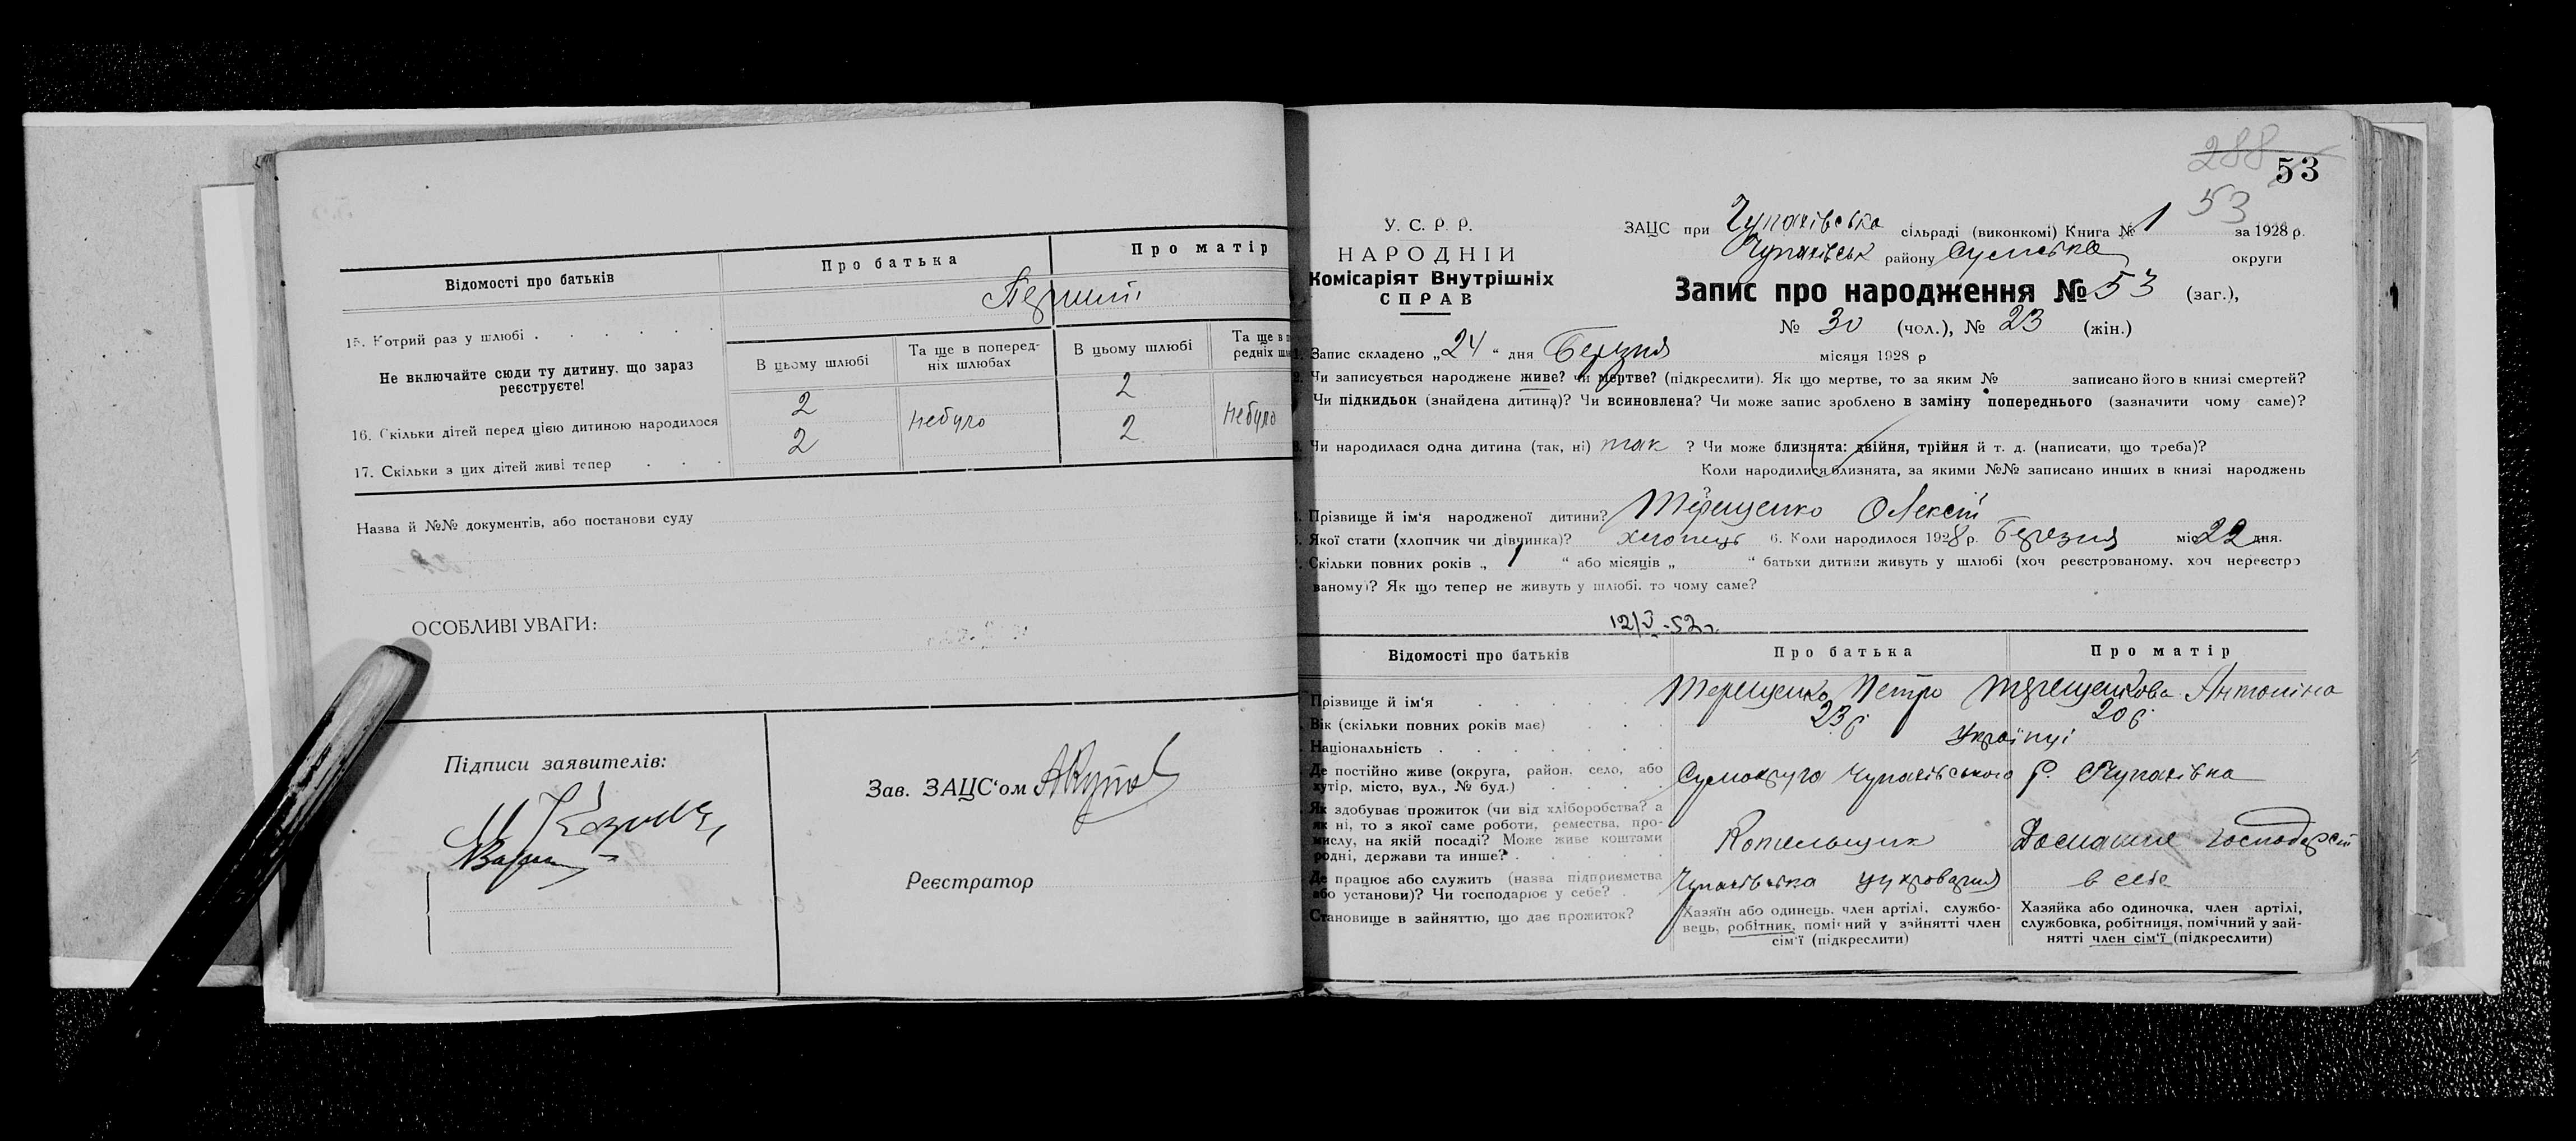 Відомості про батьків
Про батька
Про матір
15. Котрий раз у шлюбі
Перший
Не включайте сюди ту дитину, що зараз реєструєте!
В цьому шлюбі
Та ще в поперед-
ніх шлюбах
В цьому шлюбі
Та ще в п
редніх шл
16. Скільки дітей перед цією дитиною народилося
2
небуло
2
небуло
17. Скільки з цих дітей живі тепер
2
2
Назва й №№ документів, або постанови суду
ОСОБЛИВІ УВАГИ:
Підписи заявителів:
Зав. ЗАЦС‘ом
Реєстратор
288
53
53
У. С. Р. Р.
НАРОДНІЙ
Комісаріят Внутрішніх
СПРАВ
ЗАЦС при Чупахівська сільраді (виконкомі) Книга № 1 за 1928 р.
Чупахівськ району Сумська округи
Запис про народження № 53 (заг.),
№ 30 (чол.), № 23 (жін.)
Запис складено „24“ дня Березня місяця 1928 р
Чи записується народжене живе? чи мертве? (підкреслити). Як що мертве, то за яким № записано його в книзі смертей?
Чи підкидьок (знайдена дитина)? Чи всиновлена? Чи може запис зроблено в заміну попереднього (зазначити чому саме)?
Чи народилася одна дитина (так, ні) так ? Чи може близнята: двійня, трійня й т. д. (написати, що треба)?
Коли народилися близнята, за якими №№ записано инших в книзі народжень
?
Прізвище й ім‘я народженої дитини? Терещенко Олексій
Якої стати (хлопчик чи дівчинка)? хлопець 6. Коли народилося 1928 р. Березня міс 22 дня.
Скільки повних років „ 1 “ або місяців „ “ батьки дитини живуть у шлюбі (хоч реєстрованому, хоч нереєстро
ваному)? Як що тепер не живуть у шлюбі, то чому саме?
12/V-52г.
Відомості про батьків
Про батька
Про матір
Прізвище й ім‘я
Терещенко Петро
Терещенкова Антоніна
Вік (скільки повних років має)
23 р
20 р
Національність
Українці
Де постійно живе (округа, район, село, або
хутір, місто, вул., № буд.)
Сумокруга Чупахівського р. Чупахівка
Як здобуває прожиток (чи від хліборобства? а
як ні, то з якої саме роботи, ремества, про-
мислу, на якій посаді? Може живе коштами
родні, держави та инше?
Котельщик
Домашнє господарст
Де працює або служить (назва підприємства
або установи)? Чи господарює у себе?
Чупахівська цукроварня
в себе
Становище в зайняттю, що дає прожиток?
Хазяїн або одинець, член артілі, службо-
вець, робітник, помічний у зайнятті член
сім‘ї (підкреслити)
Хазяйка або одиночка, член артілі,
службовка, робітниця, помічний у зай-
нятті член сім‘ї (підкреслити)